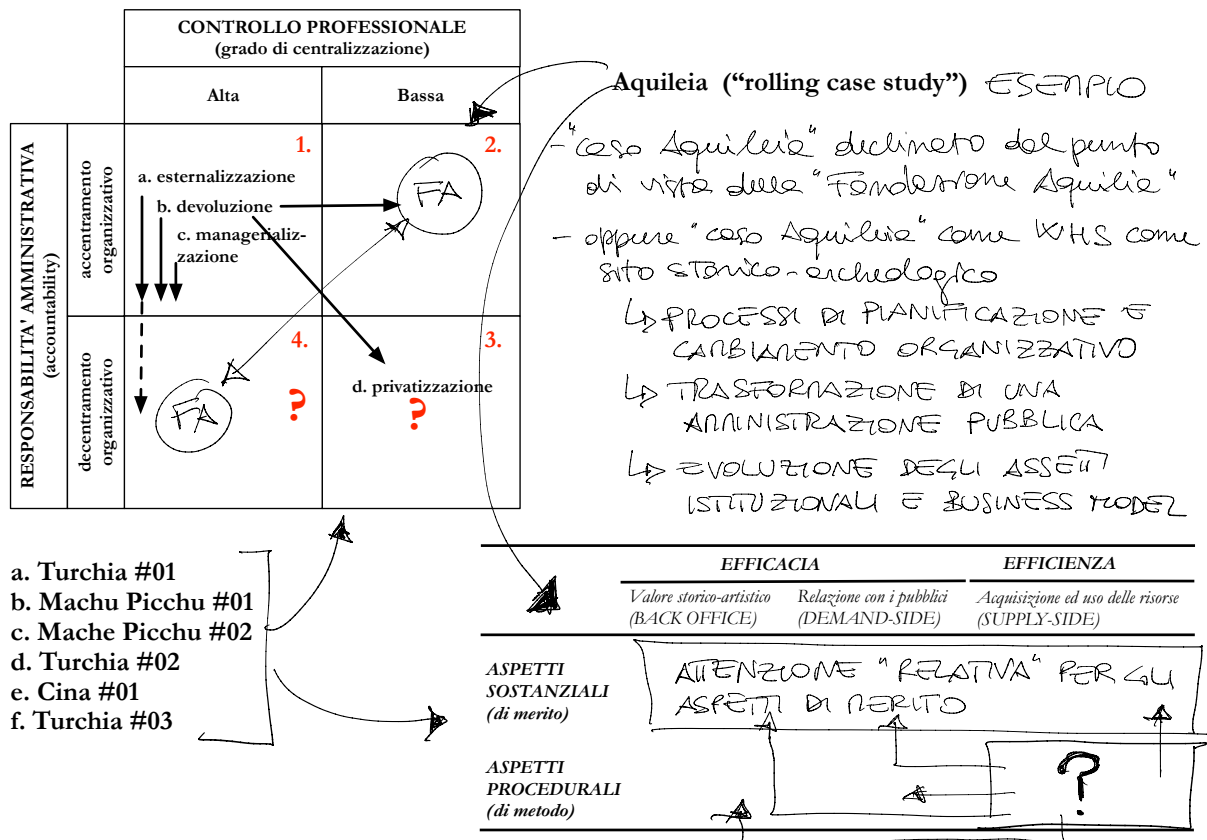 CONTROLLO PROFESSIONALE
(grado di centralizzazione)
Alta
Bassa
RESPONSABILITA' AMMINISTRATIVA
(accountability)
accentramento
organizzativo
decentramento
organizzativo
1.
2.
a. esternalizzazione
b. devoluzione
c. managerializ-
zazione
FA
4.
3.
d. privatizzazione
?
?
FA
Aquileia (“rolling case study”) ESEMPIO
- "caso Aquileia" declinato dal punto
di vista della "Fondazione Aquilia"
- oppure "caso Aquileia" come WHS come
sito storico-archeologico
↳ PROCESSI DI PIANIFICAZIONE E
CAMBIAMENTO ORGANIZZATIVO
↳ TRASFORMAZIONE DI UNA
AMMINISTRAZIONE PUBBLICA
↳ EVOLUZIONE DEGLI ASSETTI
ISTITUZIONALI E BUSINESS MODEL
a. Turchia #01
b. Machu Picchu #01
c. Mache Picchu #02
d. Turchia #02
e. Cina #01
f. Turchia #03
EFFICACIA
EFFICIENZA
Valore storico-artistico
(BACK OFFICE)
Relazione con i pubblici
(DEMAND-SIDE)
Acquisizione ed uso delle risorse
(SUPPLY-SIDE)
ASPETTI
SOSTANZIALI
(di merito)
ATTENZIONE "RELATIVA" PER GLI
ASPETTI DI MERITO
ASPETTI
PROCEDURALI
(di metodo)
?